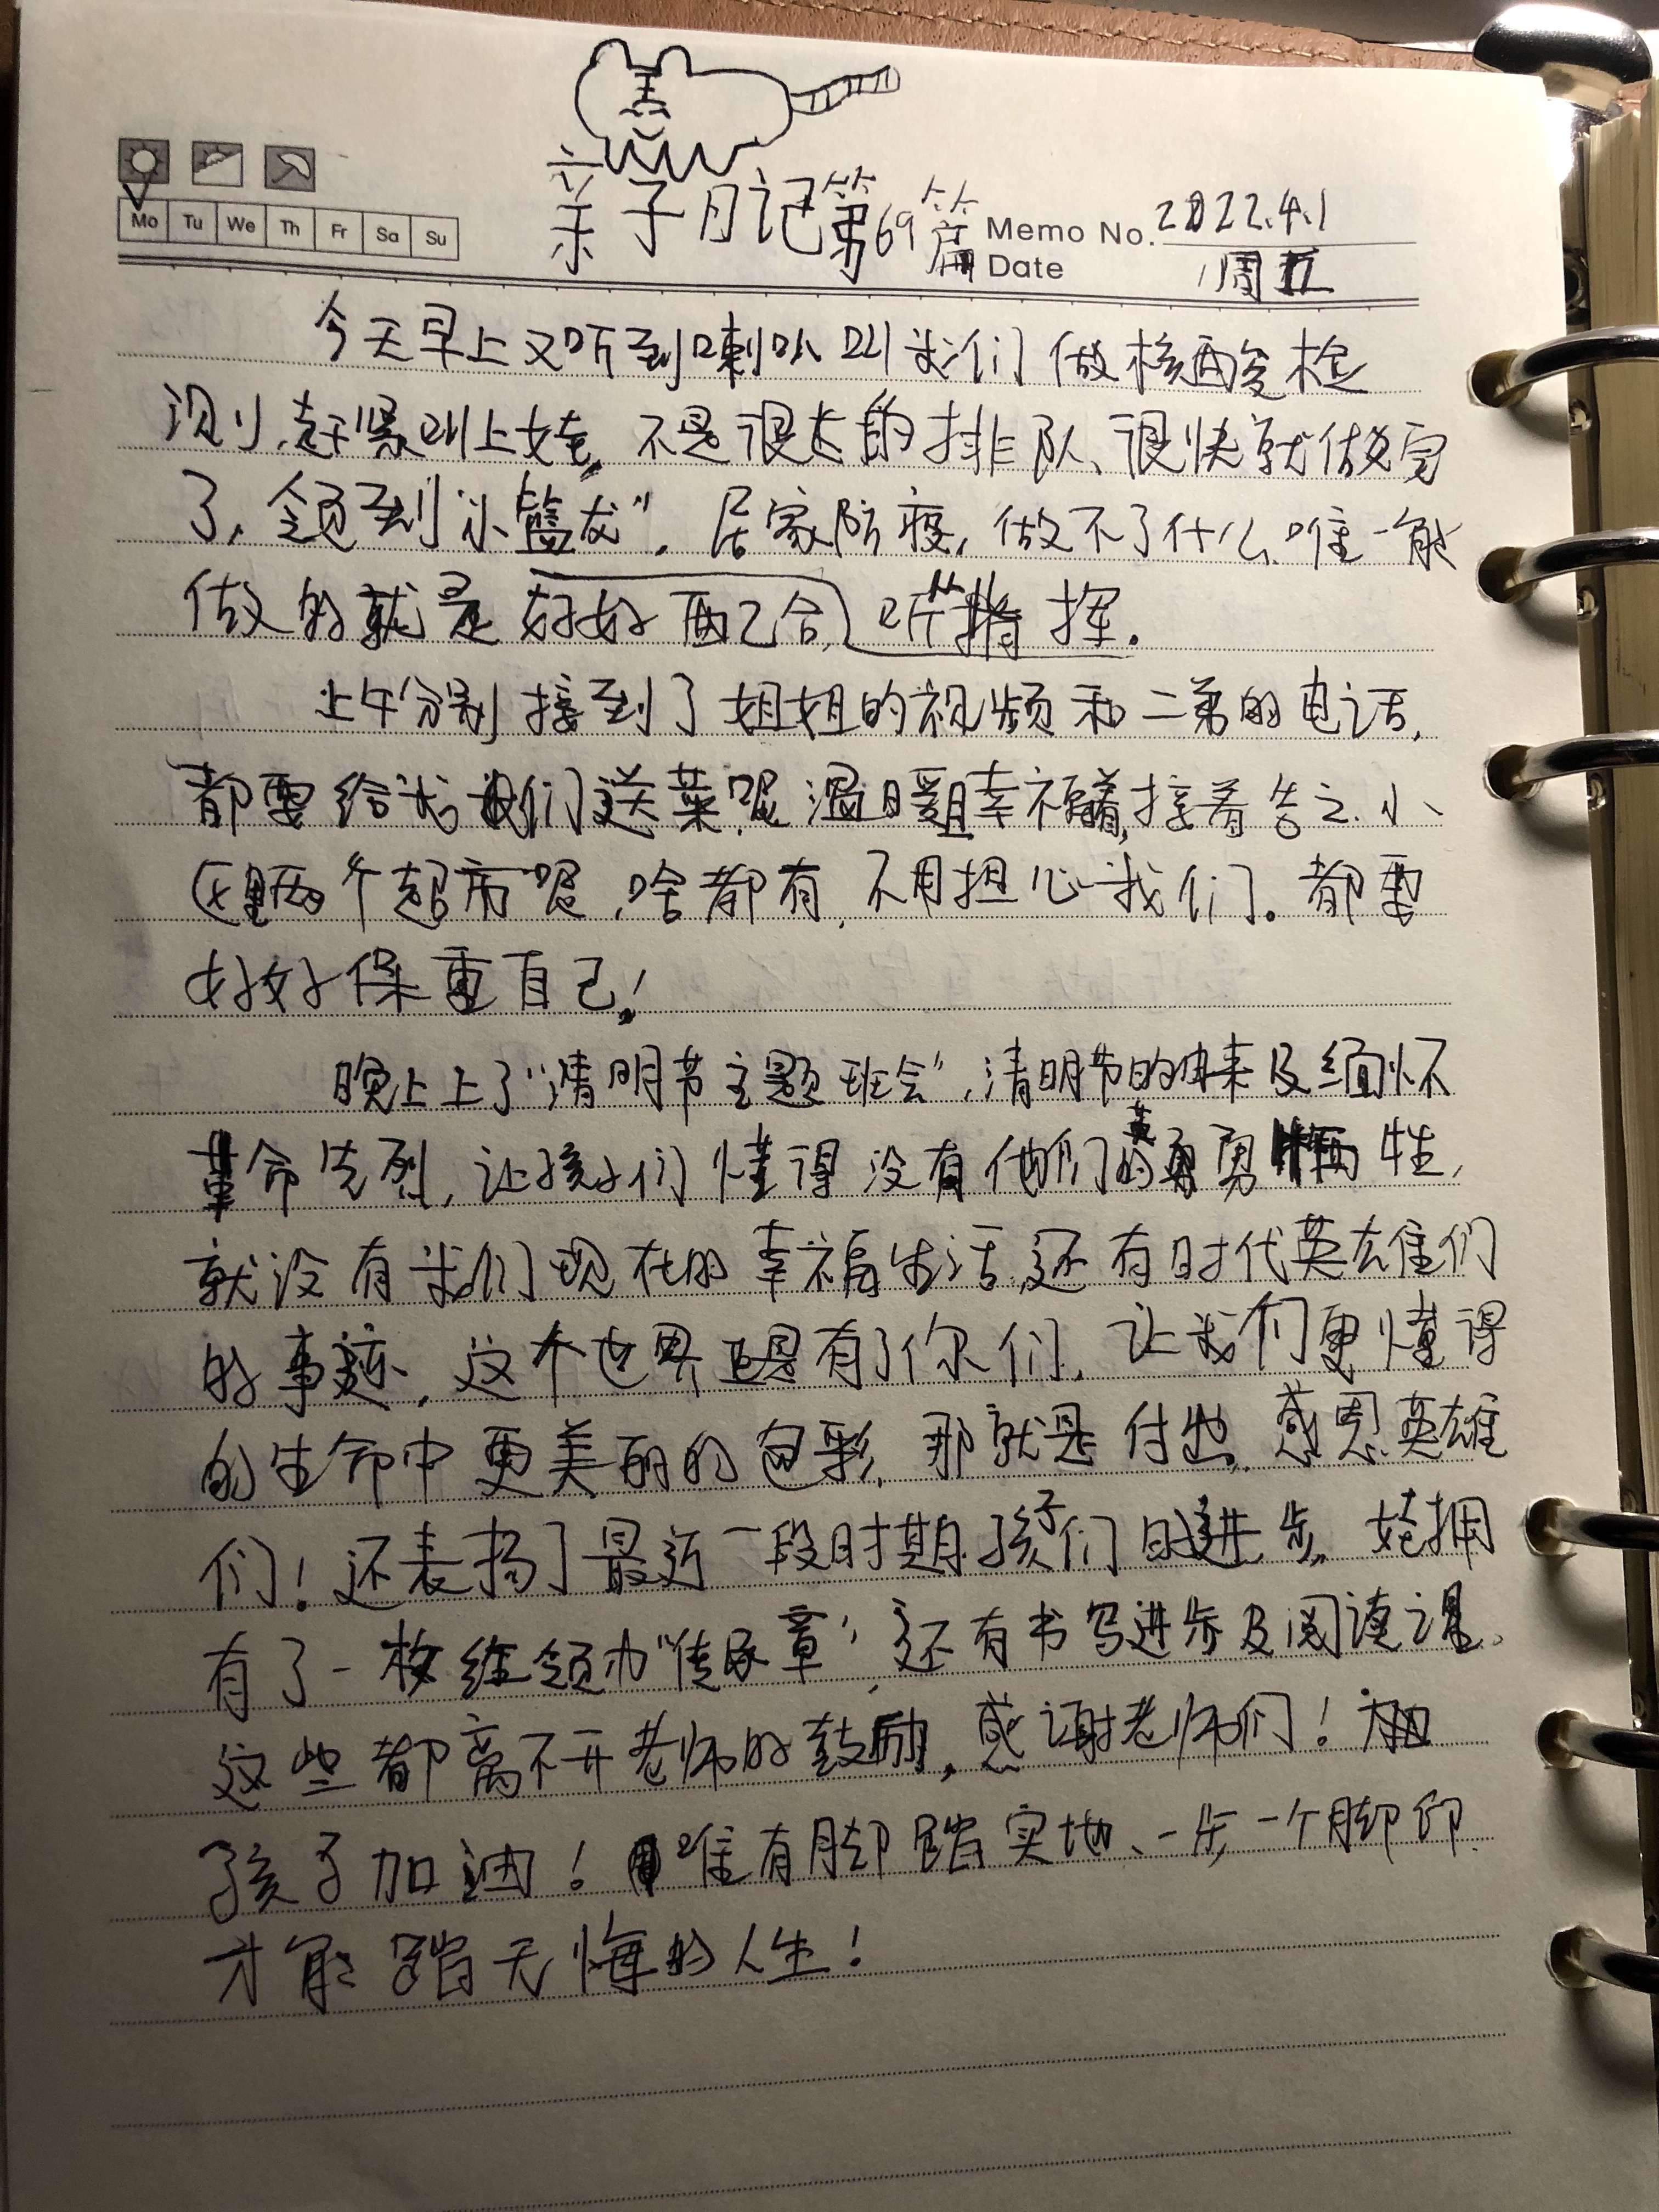 亲子日记第69篇 Memo No. 2022.4.1
Mo Tu We Th Fr Sa Su
Date 周五
今天早上又听到喇叭叫我们做核酸检
测,赶紧叫上娃,不是很长的排队、很快就做完
了,领到“小蓝龙”。居家防疫,做不了什么,唯一能
做的就是好好配合,听指挥.
上午分别接到了姐姐的视频和二弟的电话,
都要给我我们送菜呢,温暖且幸福着,接着告之,小
区里两个超市呢,啥都有,不用担心我们。都要
好好保重自己!
晚上上了“清明节主题班会”,清明节的由来及缅怀
革命先烈,让孩子们懂得没有他们的英勇牺牲,
就没有我们现在的幸福生活,还有时代英雄们
的事迹,这个世界正是有了你们,让我们更懂得
的生命中更美丽的色彩,那就是付出,感恩英雄
们!还表扬了最近一段时期孩子们的进步,娃拥
有了一枚红领巾“传承章”,还有书写进步及阅读课,
这些都离不开老师的鼓励,感谢老师们!
孩子加油!唯有脚踏实地、一步一个脚印
才能踏无悔的人生!